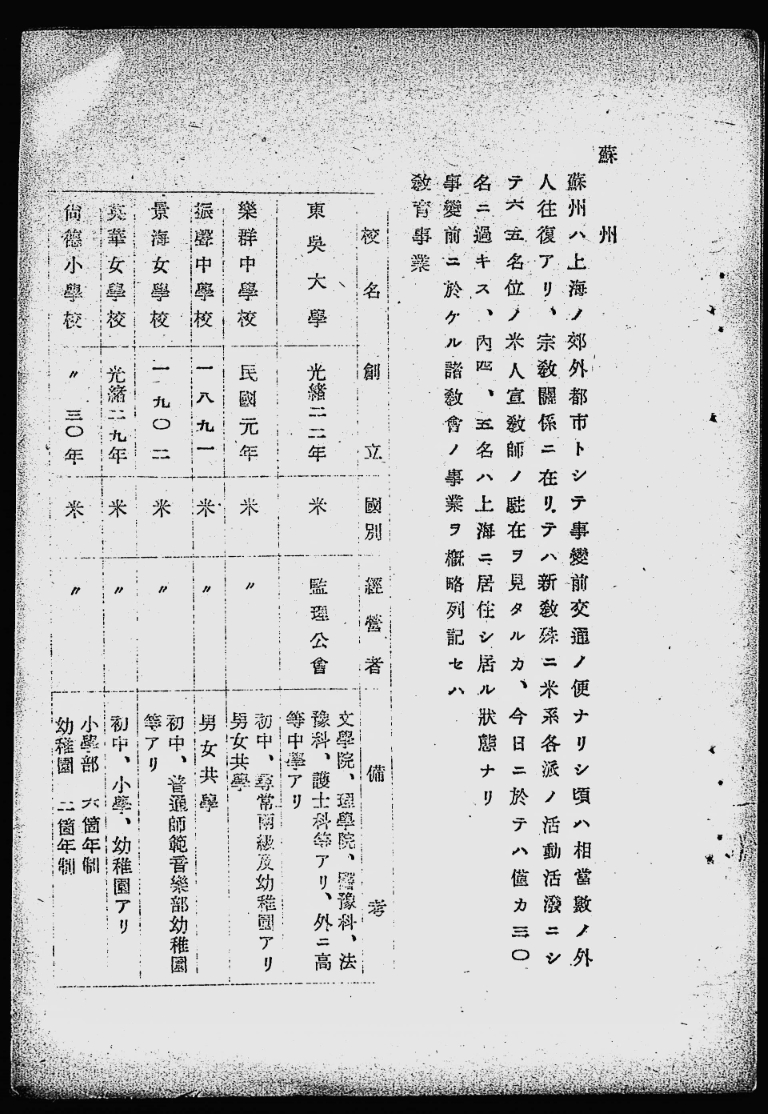 蘇州
蘇州ハ上海ノ郊外都市トシテ事變前交通ノ便ナリシ頃ハ相當數ノ外
人往復アリ、宗敎關係ニ在リテハ新敎殊ニ米系各派ノ活動活潑ニシ
テ六五名位ノ米人宣敎師ノ駐在ヲ見タルカ、今日ニ於テハ僅カ三〇
名ニ過キス、內四、五名ハ上海ニ居住シ居ル狀態ナリ
事變前ニ於ケル諸敎會ノ事業ヲ槪略列記セハ
敎育事業
校名 創立 國別 經營者 備考
東吳大學 光緖二二年 米 監理公會 文學院、理學院、醫豫科、法
豫科、護士科等アリ、外ニ高
等中學アリ
樂群中學校 民國元年 米 〃 初中、尋常兩級及幼稚園アリ
男女共學
振聲中學校 一八九一 米 〃 男女共學
景海女學校 一九〇二 米 〃 初中、普通師範音樂部幼稚園
等アリ
英華女學校 光緖二九年 米 〃 初中、小學、幼稚園アリ
尙德小學校 〃三〇年 米 〃 小學部 六箇年制
幼稚園 二箇年制